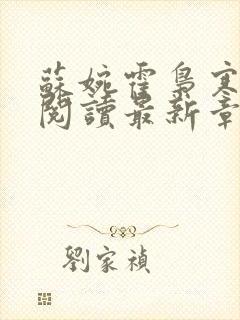 蘇婉霍梟寒
閱讀最新章
劉家禎